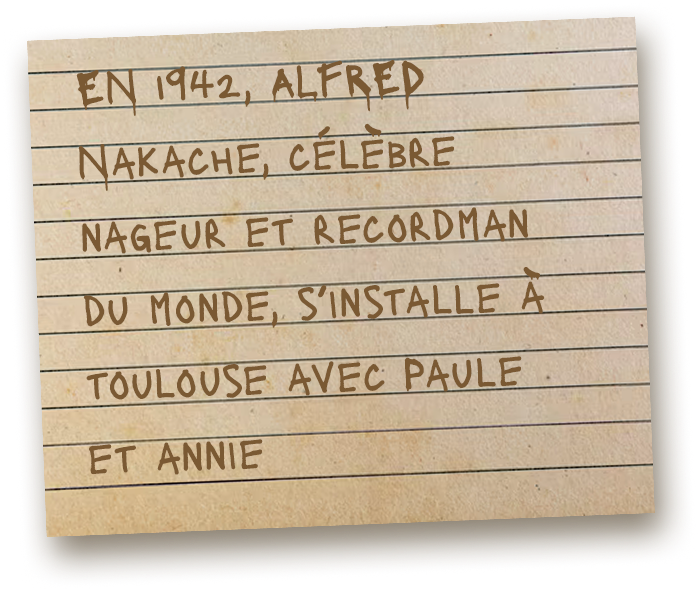 EN 1942, ALFRED
NAKACHE, CÉLÈBRE
NAGEUR ET RECORDMAN
DU MONDE, S'INSTALLE À
TOULOUSE AVEC PAULE
ET ANNIE